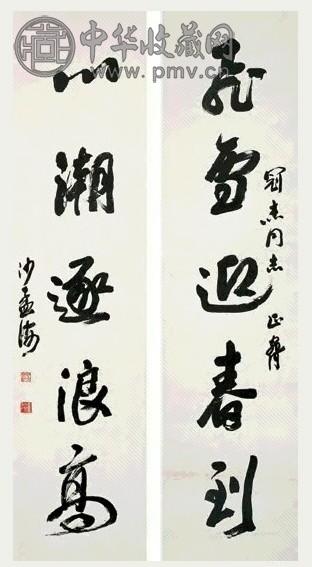 中华收藏网
www.pmv.cn
飛雪迎春到
冠杰同志 正
心潮逐浪高
沙孟海